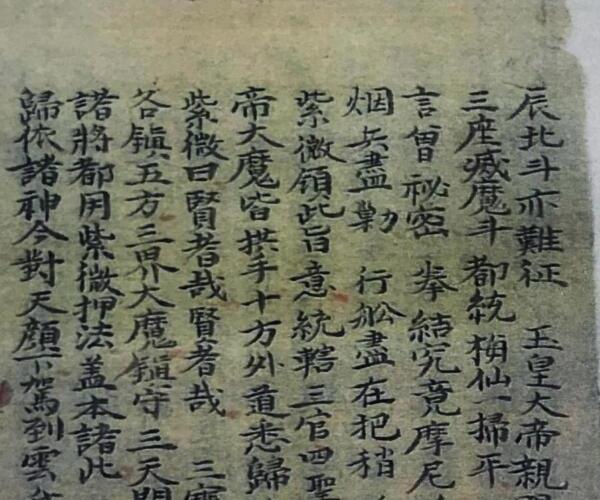 辰北斗亦難征 玉皇大帝親
三座滅魔斗都統梢仙一掃平
言曾祕密 拳結究竟摩尼
烟兵盡勦 行舩盡在把稍
紫微領此旨意統轄三官四聖
帝大魔皆拱手十方外道悉歸
紫微曰賢者哉賢者哉 三
各鎮五方三界大魔鎮守三天門
諸將都用紫微押法蓋本諸此
歸依諸神今對天顔下駕到雲